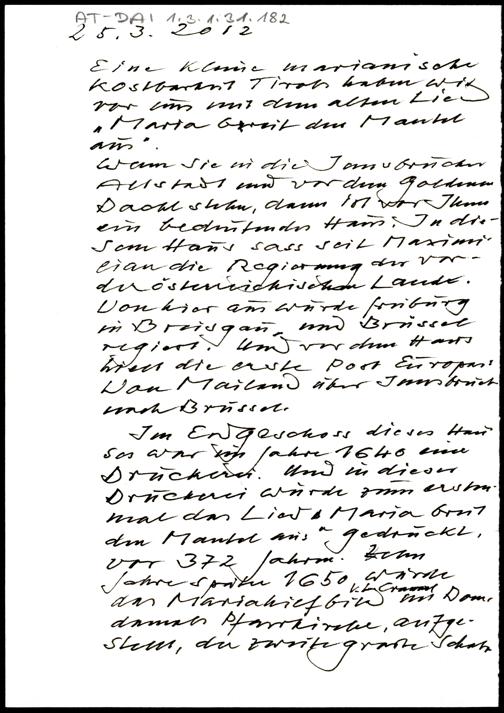 AT-DAI 1.3.1.31.182
25.3.2012
Eine kleine marianische
Kostbarkeit Tirols haben wir
vor uns mit dem alten Lied
„Maria breit den Mantel
aus".
Wenn Sie in die Innsbrucker
Altstadt und vor dem Goldenen
Dachl stehn, dann ist vor Ihnen
ein bedeutendes Haus. In die-
sem Haus sass seit Maximi-
lian die Regierung der vor-
derösterreichischen Lande.
Von hier aus wurde Freiburg
in Breisgau und Brüssel
regiert. Und vor dem Haus
hielt die erste Post Europas
Von Mailand über Innsbruck
nach Brüssel.
Im Erdgeschoss dieses Hau
ses war im Jahre 1640 eine
Druckerei. Und in dieser
Druckerei wurde zum ersten-
mal das Lied „Maria breit
den Mantel aus" gedruckt,
vor 372 Jahren. Zehn
Jahre später 1650 wurde
das Mariahilfbild v. L. Cranach im Dom,
damals Pfarrkirche, aufge-
stellt, der zweite große Schatz